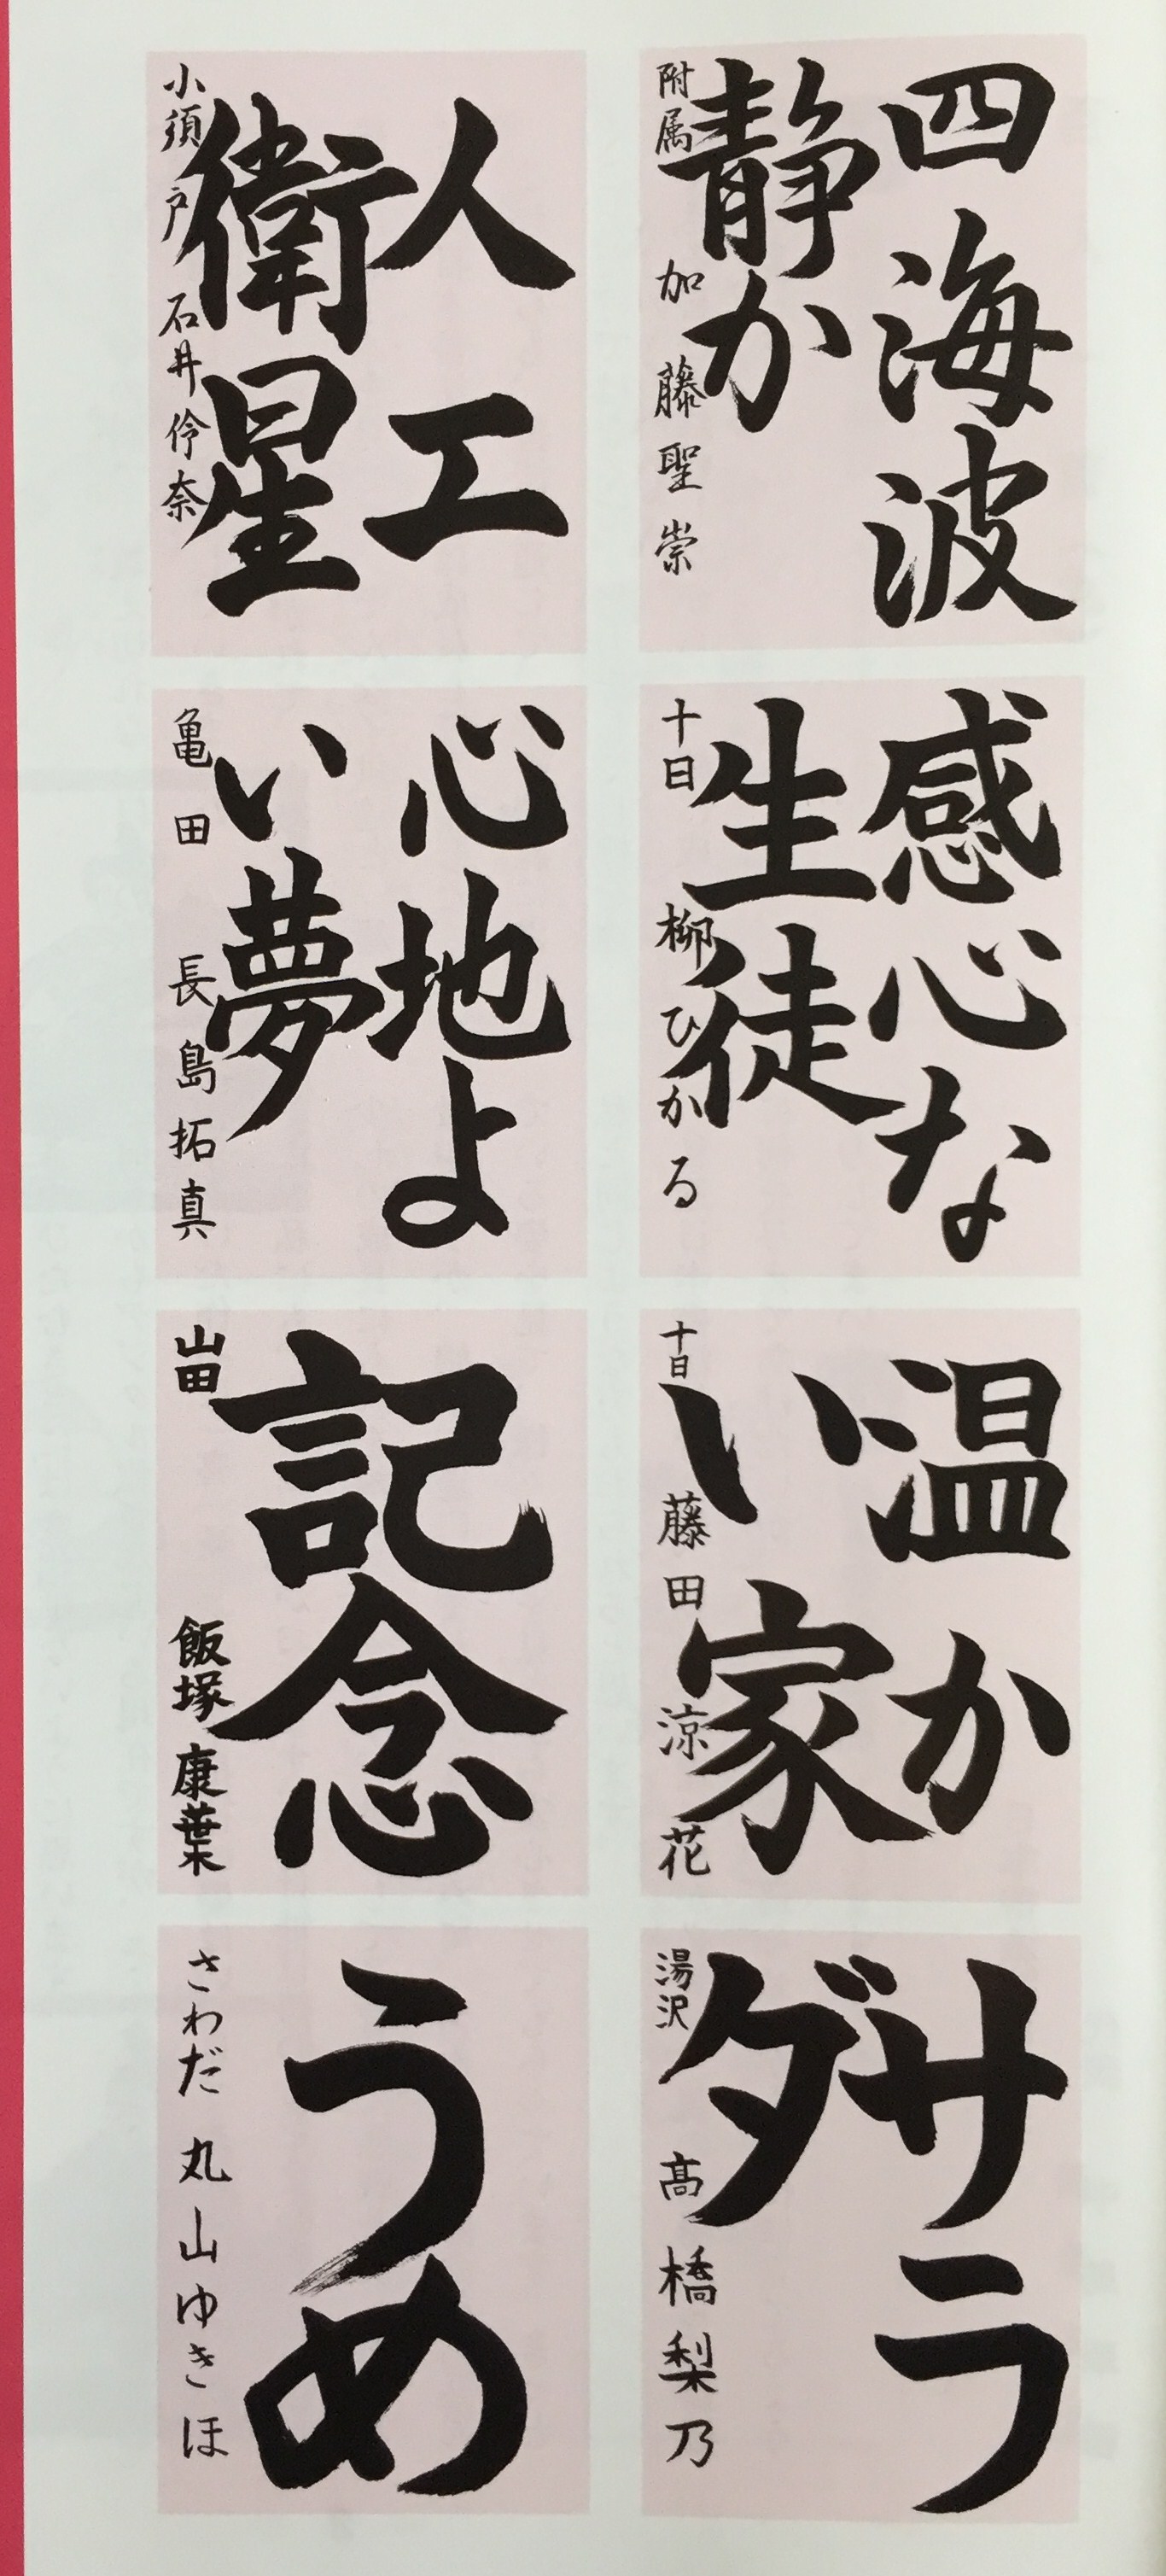 四海波
静か
附属 加藤聖崇
感心な
生徒
十日 柳ひかる
温か
い家
十日 藤田涼花
サラ
ダ
湯沢 髙橋梨乃
人工
衛星
小須戸 石井伶奈
心地よ
い夢
亀田 長島拓真
記念
山田 飯塚康葉
うめ
さわだ 丸山ゆきほ